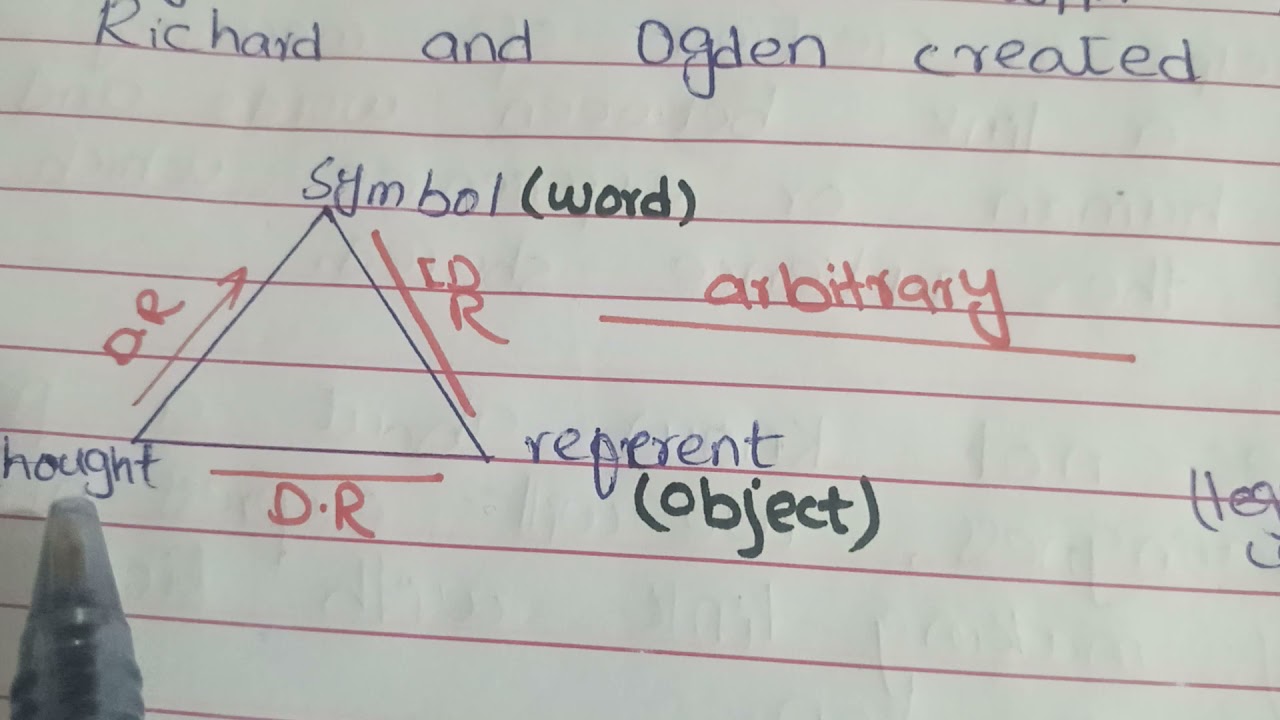 Richard and Ogden created
Symbol (word)
ID
R
arbitrary
hought
referent
D.R
(object)